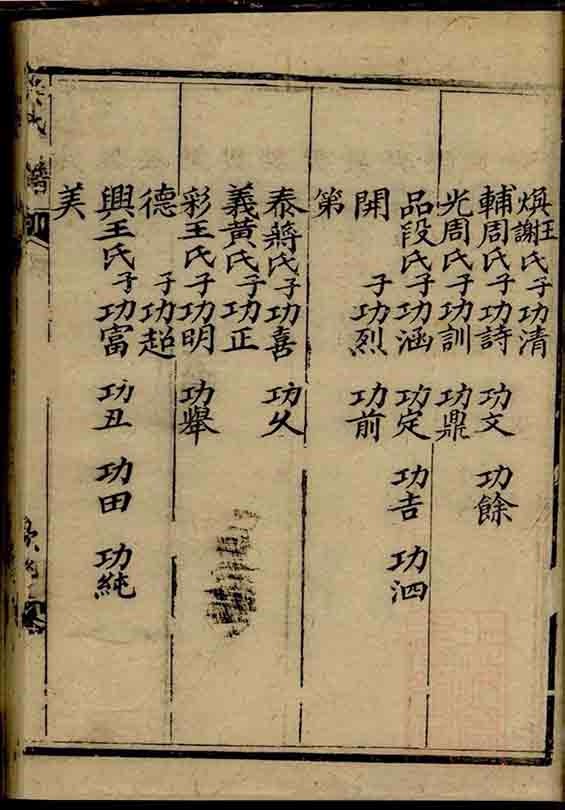 煥王謝氏子功清
輔周氏子功詩 功文 功餘
光周氏子功訓 功鼎
品段氏子功涵 功定 功吉 功泗
開 子功烈 功前
第
泰蔣氏子功喜 功久
義黃氏子功正
彩王氏子功明 功舉
德 子功超
興王氏子功富 功丑 功田 功純
美
氏譜